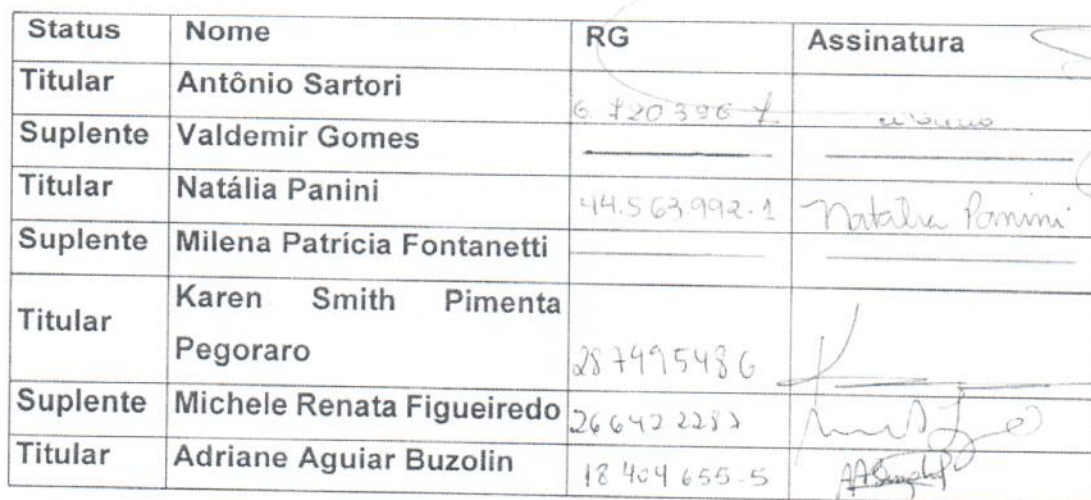 Status Nome RG Assinatura
Titular Antônio Sartori 6.720396 7
Suplente Valdemir Gomes
Titular Natália Panini 44.563.992-1 Natalia Panini
Suplente Milena Patrícia Fontanetti
Titular Karen Smith Pimenta
Pegoraro 287495486
Suplente Michele Renata Figueiredo
Titular Adriane Aguiar Buzolin 18 404 655-5